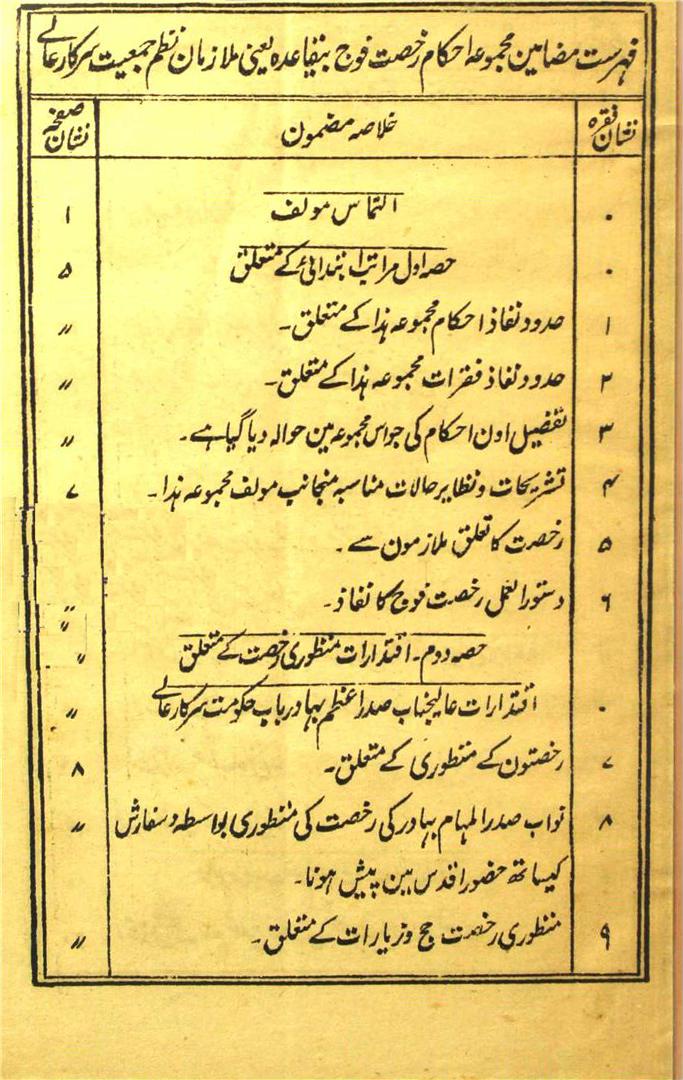 فہرست مضامین مجموعہ احکام رخصت فوج بیقاعدہ یعنی ملازمان نظم جمعیت سرکار عالے
نشان فقرہ خلاصہ مضمون نشان صفحہ
۰ التماس مولف ۱
۰ حصہ اول مراتب ابتدائی کے متعلق ۵
۱ حدود نفاذ احکام مجموعہ ہذا کے متعلق۔ 〃
۲ حدود نفاذ فقرات مجموعہ ہذا کے متعلق۔ 〃
۳ تفصیل اون احکام کی جو اس مجموعہ مین حوالہ دیا گیا ہے۔ 〃
۴ تشریحات و نظایر حالات مناسبہ منجانب مولف مجموعہ ہذا۔ ۷
۵ رخصت کا تعلق ملازمون سے۔
۶ دستور العمل رخصت فوج کا نفاذ۔ 〃
〃
حصہ دوم۔ اقتدارات منظوری رخصت کے متعلق 〃
۰ اقتدارات عالیجناب صدر اعظم بہادر باب حکومت سرکار عالے 〃
۷ رخصتون کے منظوری کے متعلق۔ ۸
۸ نواب صدر المہام بہادر کی رخصت کی منظوری بواسطہ و سفارش 〃
کیساتھ حضور اقدس مین پیش ہونا۔
۹ منظوری رخصت حج و زیارات کے متعلق۔ 〃